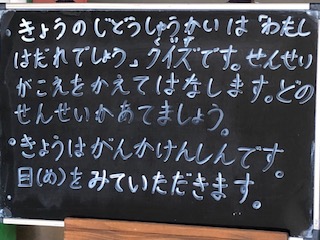 きょうのじどうしゅうかいは「わたし
はだれでしょう」クイズです。せんせい
がこえをかえてはなします。どの
せんせいかあてましょう。
きょうはがんかけんしんです。
目(め)をみていただきます。